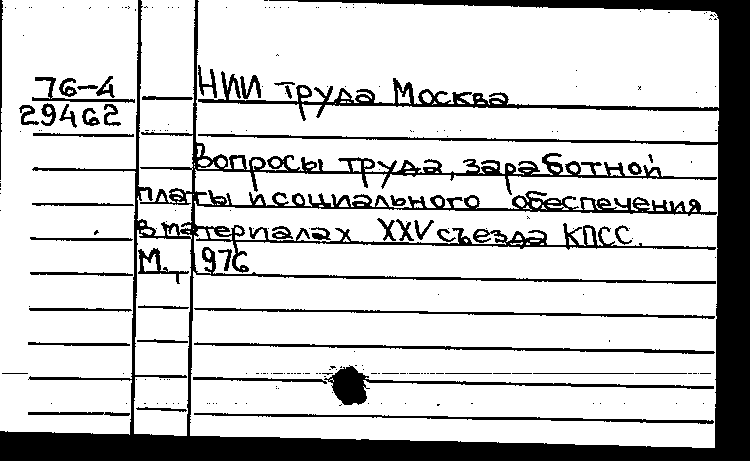 76-4
29462
НИИ труда Москва
Вопросы труда, заработной
платы и социального обеспечения
в материалах XXV съезда КПСС.
М., 1976.